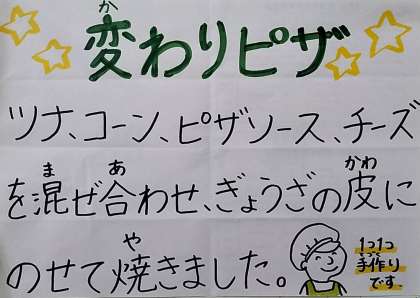 変わりピザ
ツナ、コーン、ピザソース、チーズ
を混ぜ合わせ、ぎょうざの皮に
のせて焼きました。
1つ1つ
手作り
です